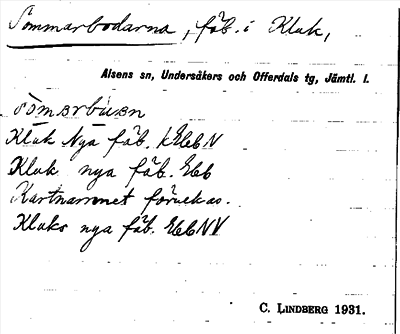 Sommarbodarna, fäb. i Kluk,
Alsens sn, Undersåkers och Offerdals tg, Jämtl. l.
sömarbuen
Kluk Nya fäb. kEbbN
Kluk nya fäb. Ebb
Kartnamnet förvekas.
Kluks nya fäb. EbbNV
C. LINDBERG 1931.